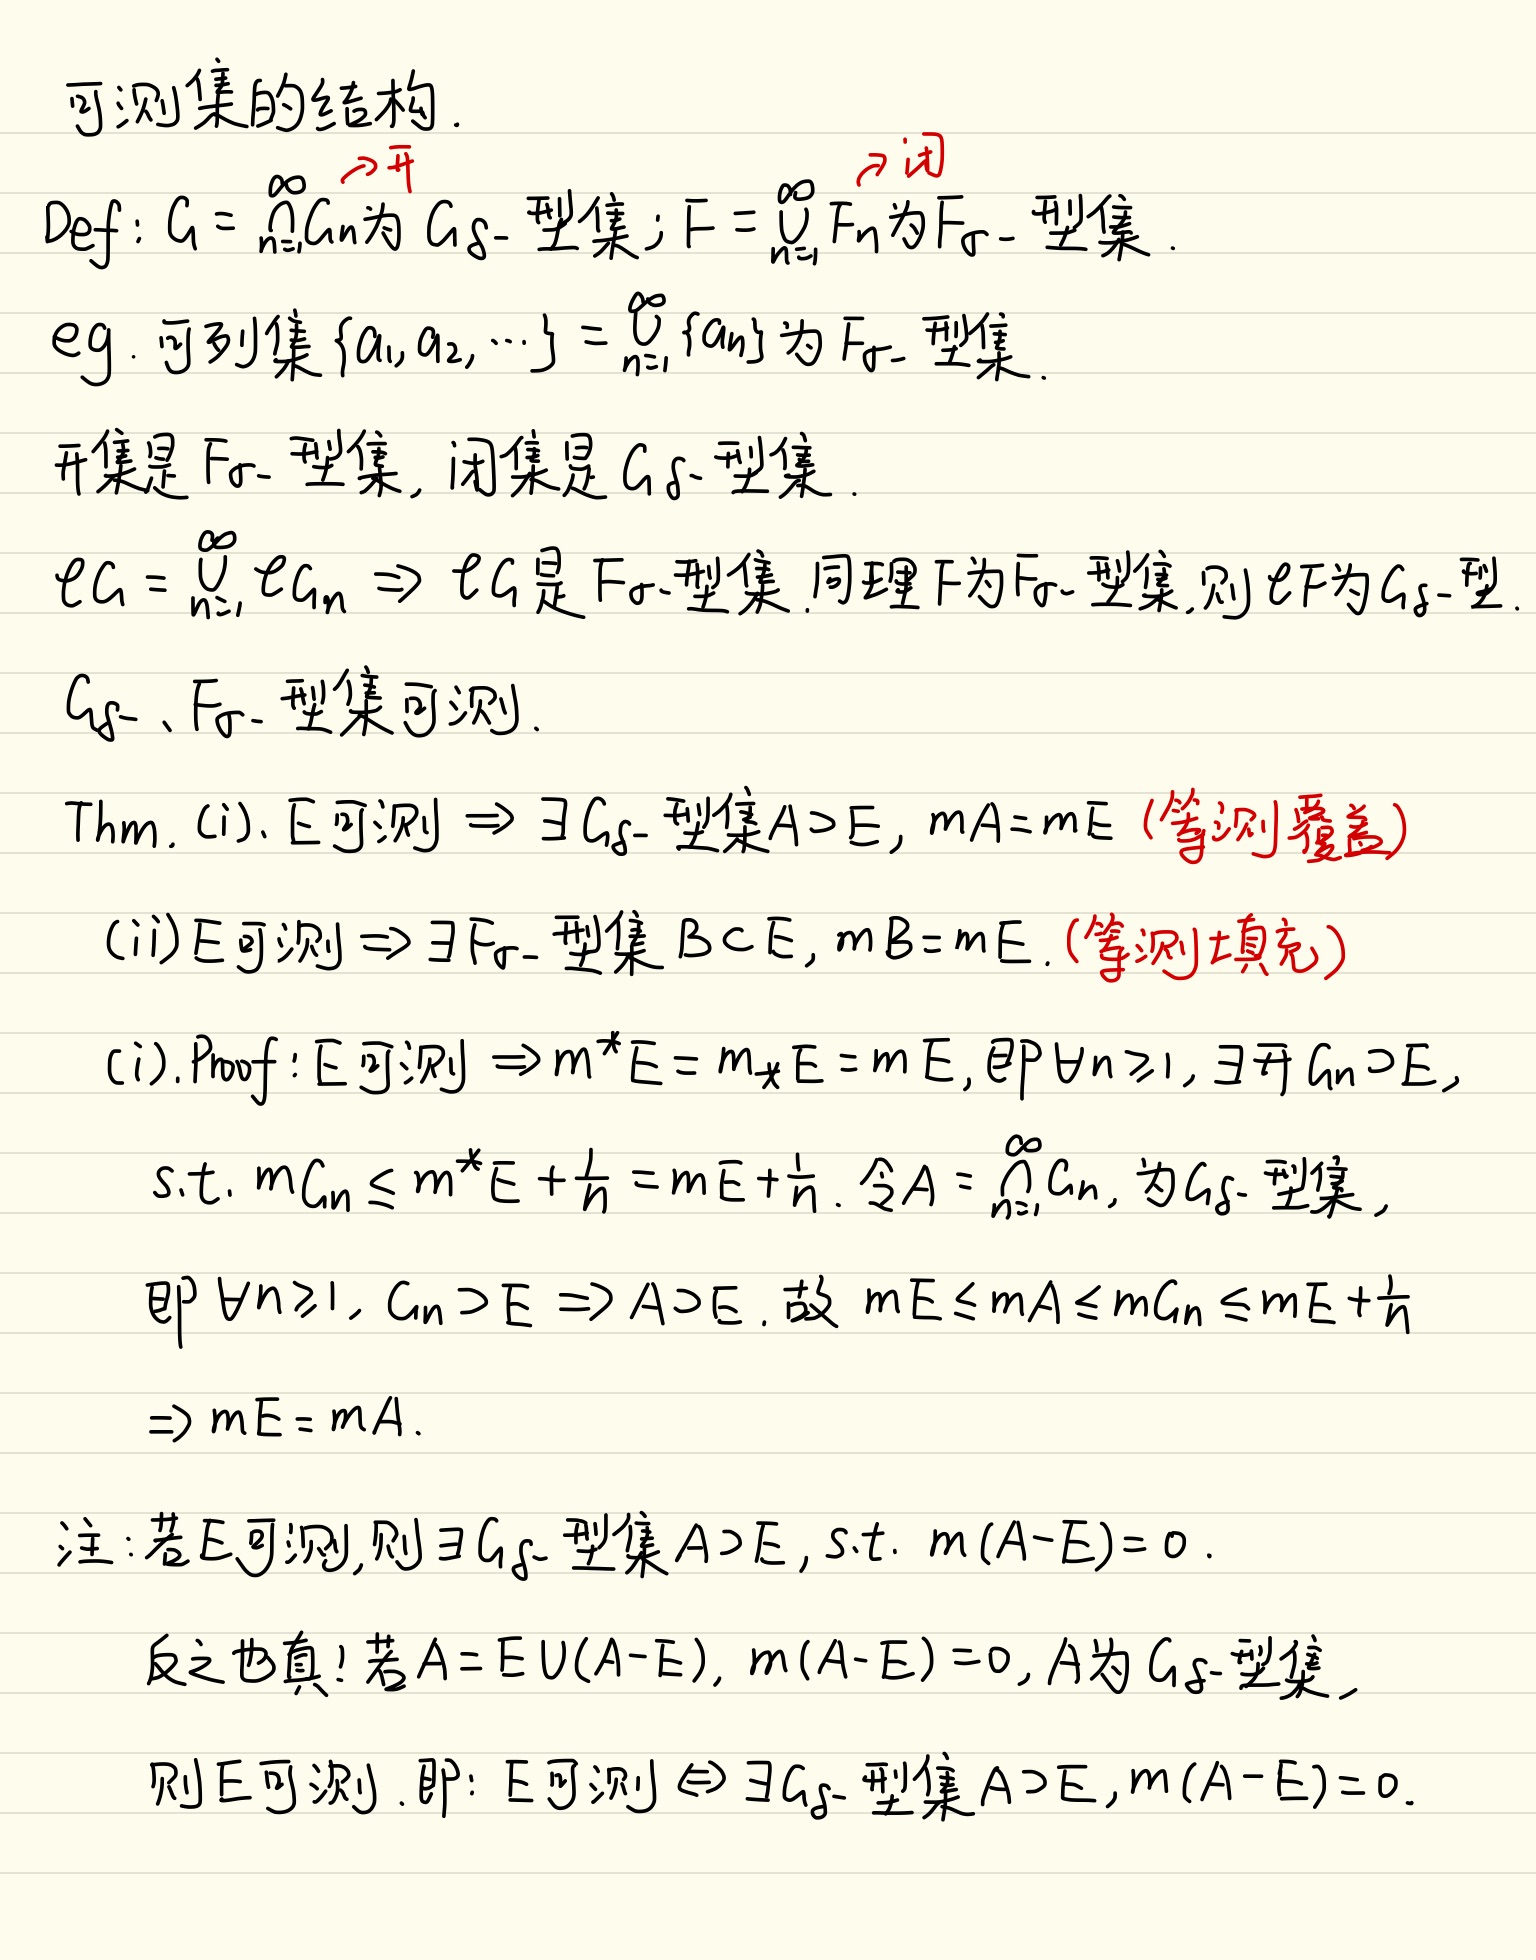 可测集的结构.
→开 →闭
Def: G = ∞∩n=1 Gn为 Gδ- 型集; F = ∞∪n=1 Fn为Fσ- 型集.
eg. 可列集 {a1, a2, ···} = ∞∪n=1 {an} 为 Fσ- 型集.
开集是 Fσ- 型集, 闭集是 Gδ- 型集.
𝒞G = ∞∪n=1 𝒞Gn ⇒ 𝒞G是 Fσ-型集.同理F为Fσ-型集,则𝒞F为Gδ-型.
Gδ-、Fσ- 型集可测.
Thm. (i). E可测 ⇒ ∃Gδ- 型集A⊃E, mA=mE (等测覆盖)
(ii) E可测 ⇒ ∃Fσ- 型集 B⊂E, mB=mE. (等测填充)
(i). Proof: E可测 ⇒ m*E = m⁎E = mE, 即∀n≥1, ∃开Gn⊃E,
s.t. mGn ≤ m*E + 1/n = mE + 1/n. 令A = ∞∩n=1 Gn, 为Gδ- 型集,
即 ∀n≥1, Gn⊃E ⇒ A⊃E. 故 mE ≤ mA ≤ mGn ≤ mE + 1/n
⇒ mE = mA.
注: 若E可测,则∃Gδ- 型集A⊃E, s.t. m(A-E)=0.
反之也真! 若A=E∪(A-E), m(A-E)=0, A为Gδ-型集,
则E可测.即: E可测 ⇔ ∃Gδ- 型集A⊃E, m(A-E)=0.